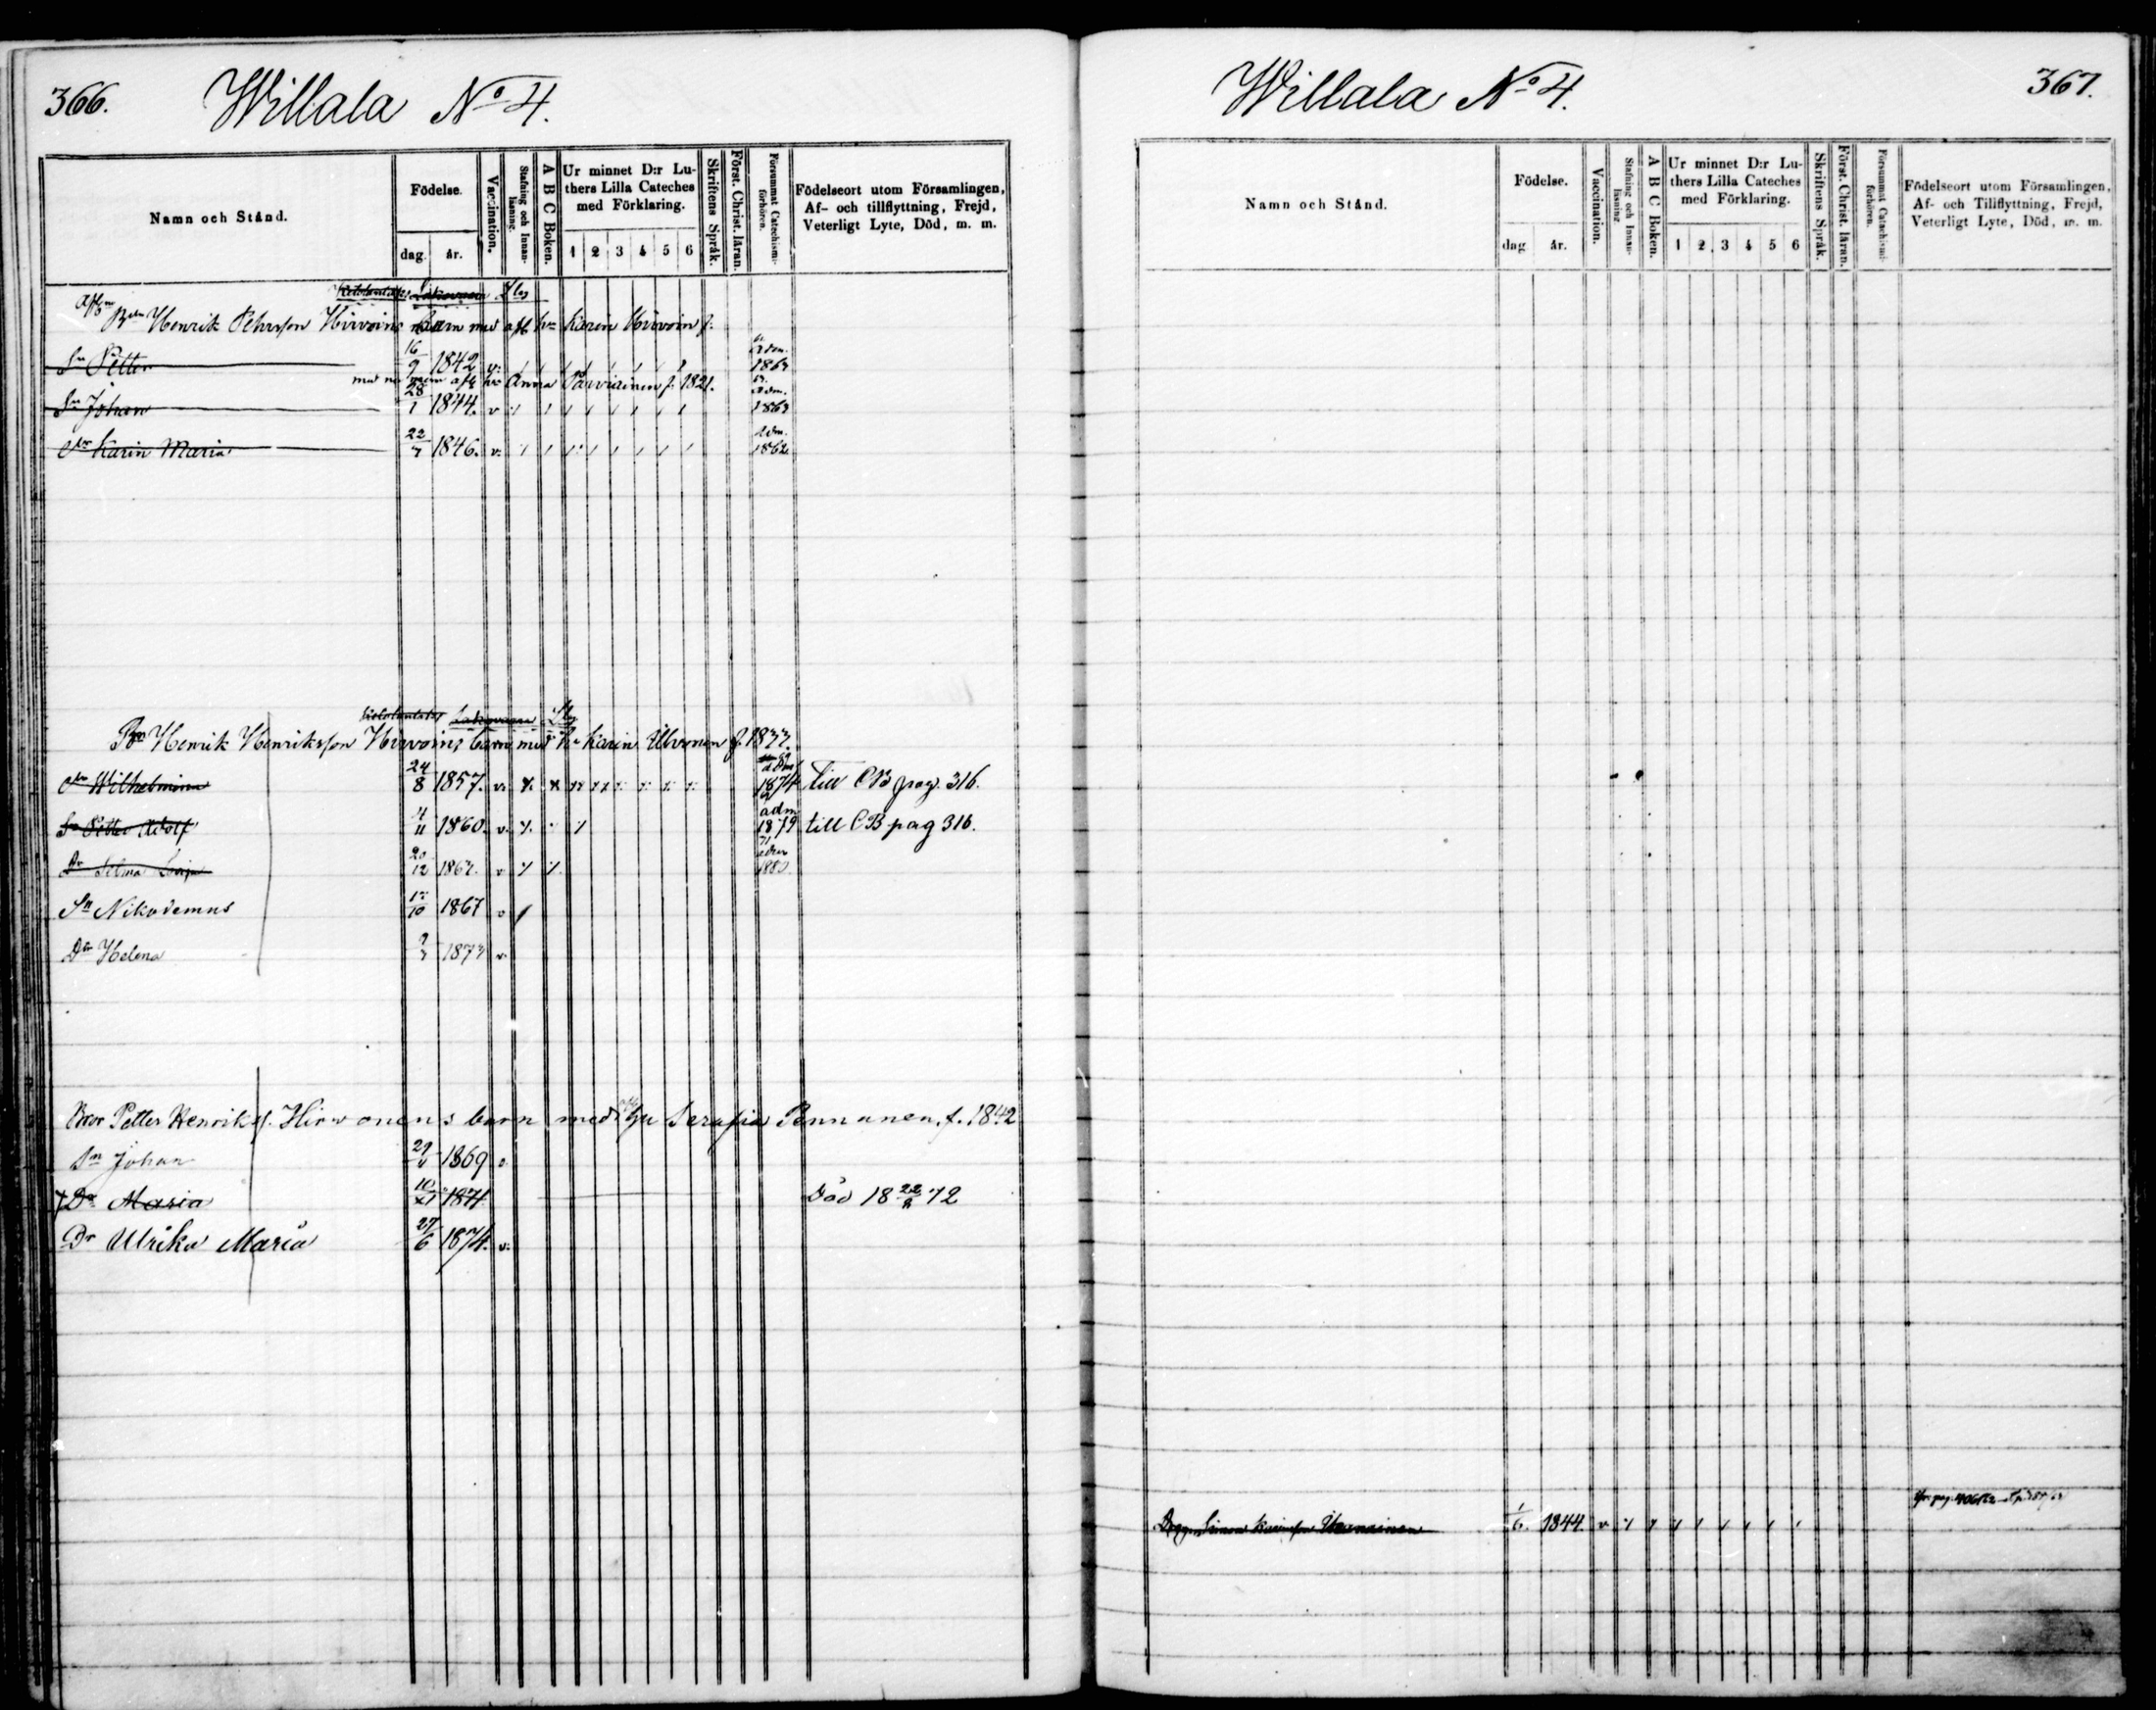 366. Willala No 4.
Namn och Stånd.
Födelse.
dag. år.
Vaccination.
Stafning och Innanläsning.
A B C Boken.
Ur minnet D:r Lu-
thers Lilla Cateches
med Förklaring.
1 2 3 4 5 6
Skriftens Språk.
Först. Christ. läran.
Försummat Catechismi-
förhören.
Födelseort utom Församlingen,
Af- och tillflyttning, Frejd,
Veterligt Lyte, Död, m. m.
Henrik Pehrsson Hirvoins barn med afl. hu Karin Hirvoin f.
Sn Petter 16/9 1842 v. adm. 1863
afl. hu Anna Parviainen f. 1821.
Sn Johan 28/1 1844. v adm. 1863
Dr Karin Maria 22/7 1846. v. adm. 1862
Bn Henrik Henriksson Hirvoins barn med hu Karin f. 1833.
Dr Wilhelmina 24/8 1857. v. adm 1874 Till CB pag. 316.
Sn Petter Adolf 4/11 1860. v. adm 1879 till CB pag 316.
Dr Selma 20/12 186 v adm 1880
Sn Nikodemus /10 1867 v
Dr Helena 1873 v.
Bror Petter Henrikss. Hirvonens barn med hu Serafia Pennanen, f. 1842
Sn Johan 29/ 1869 v.
Dr Maria 10/XI 1871 Död 18 22/8 72
Dr Ulrika Maria 27/6 1874. v.
Willala No 4. 367.
Namn och Stånd.
Födelse.
dag år.
Vaccination.
Stafning och Innanläsning
A B C Boken.
Ur minnet D:r Lu-
thers Lilla Cateches
med Förklaring.
1 2 3 4 5 6
Skriftens Språk.
Först. Christ. läran.
Försummat Catechismi-
förhören.
Födelseort utom Församlingen,
Af- och Tillflyttning, Frejd,
Veterligt Lyte, Död, m. m.
Simon 1/6. 1844. v